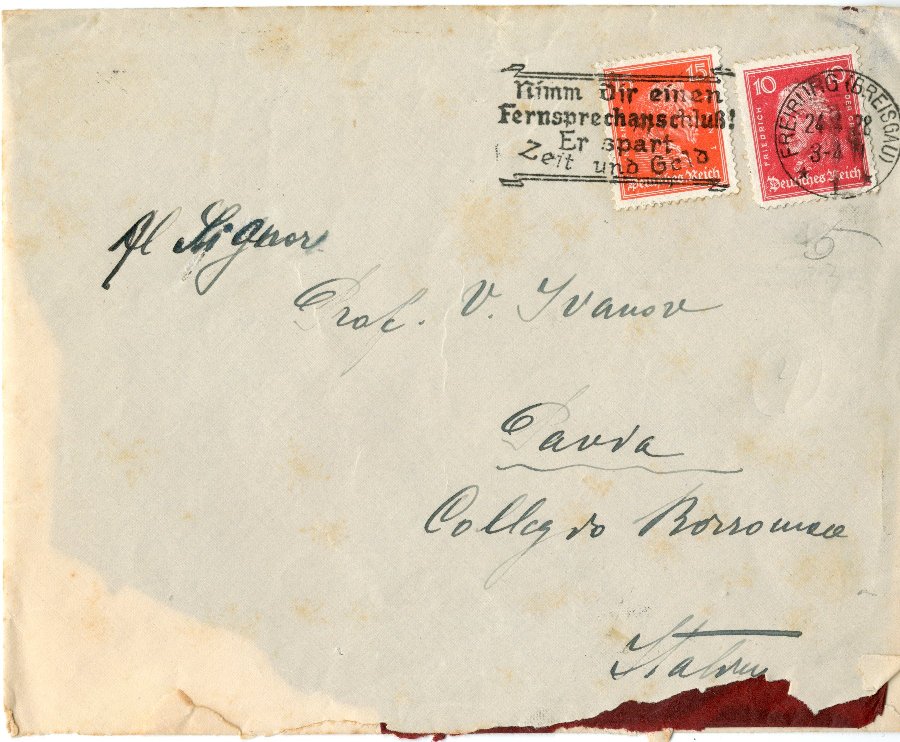 Nimm Dir einen
Fernsprechanschluß!
Er spart
Zeit und Geld
15
Deutsches Reich
10
10
FRIEDRICH
DER
Deutsches Reich
FREIBURG (BREISGAU)
24.4.28
3-4
* 1 *
Al Signore
Prof. V. Ivanov
Pavia
Collegio Borromeo
Italien